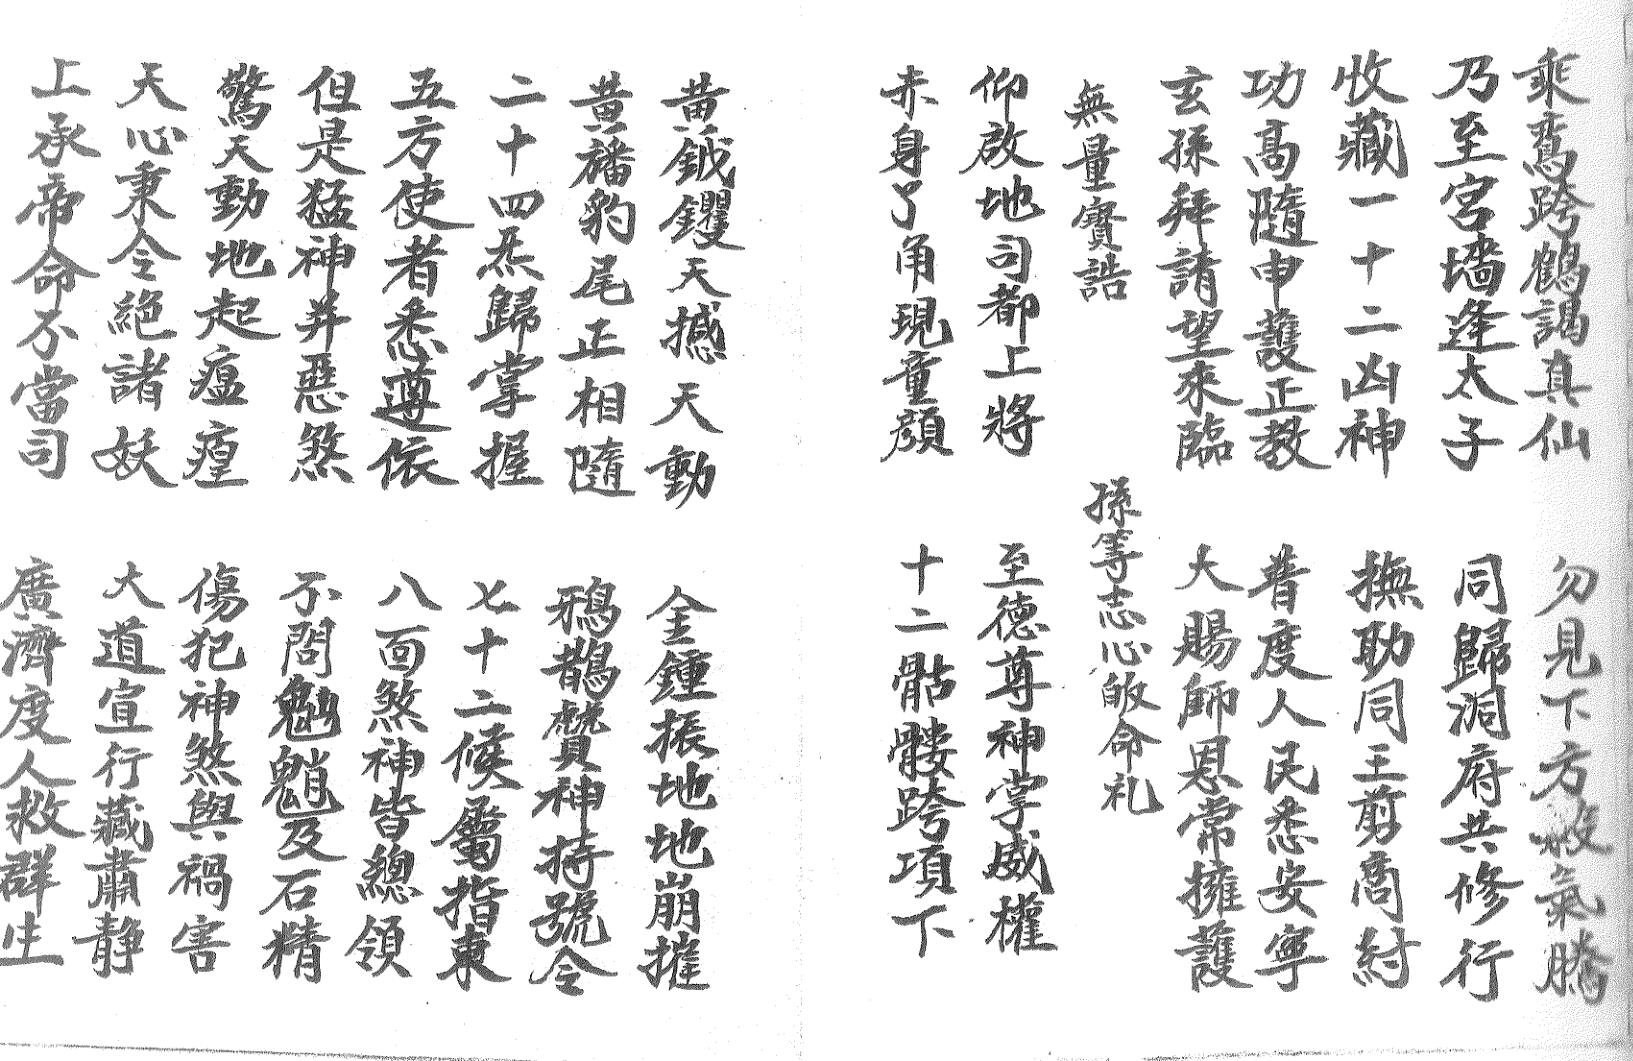 乘鸞跨鶴謁真仙　勿見下方殺氣騰
乃至宮墻逢太子　同歸洞府共修行
收藏一十二凶神　撫助同王剪商紂
功高隨申護正教　普度人民悉安寧
玄孫拜請望來臨　大賜師恩常擁護
孫等志心皈命礼
無量寶誥
仰啟地司都上將　至德尊神掌威權
赤身了角現童顏　十二骷髏跨項下
黃鉞钁天撼天動　金鍾振地地崩摧
黃旛豹尾正相隨　鴉鵲神持號令
二十四炁歸掌握　七十二候屬指東
五方使者悉遵依　八面煞神皆總領
但是猛神并惡煞　不問魈及石精
驚天動地起瘟瘴　傷犯神煞與禍害
天心秉令絕諸妖　大道宣行藏肅静
上承帝命不當司　廣濟度人救群生